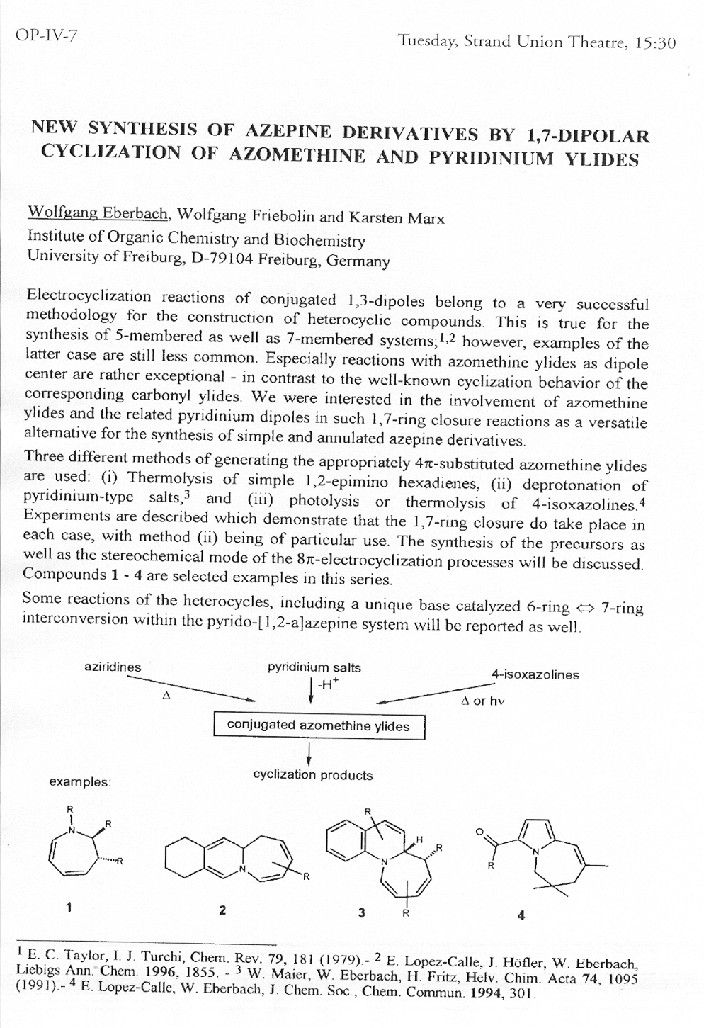 OP-IV-7
Tuesday, Strand Union Theatre, 15:30
NEW SYNTHESIS OF AZEPINE DERIVATIVES BY 1,7-DIPOLAR
CYCLIZATION OF AZOMETHINE AND PYRIDINIUM YLIDES
Wolfgang Eberbach, Wolfgang Friebolin and Karsten Marx
Institute of Organic Chemistry and Biochemistry
University of Freiburg, D-79104 Freiburg, Germany
Electrocyclization reactions of conjugated 1,3-dipoles belong to a very successful
methodology for the construction of heterocyclic compounds. This is true for the
synthesis of 5-membered as well as 7-membered systems;1,2 however, examples of the
latter case are still less common. Especially reactions with azomethine ylids as dipole
center are rather exceptional - in contrast to the well-known cyclization behavior of the
corresponding carbonyl ylides. We were interested in the involvement of azomethine
ylides and the related pyridinium dipoles in such 1,7-ring closure reactions as a versatile
alternative for the synthesis of simple and annulated azepine derivatives.
Three different methods of generating the appropriately 4π-substituted azomethine ylides
are used: (i) Thermolysis of simple 1,2-epimino hexadienes, (ii) deprotonation of
pyridinium-type salts,3 and (iii) photolysis or thermolysis of 4-isoxazolines.4
Experiments are described which demonstrate that the 1,7-ring closure do take place in
each case, with method (ii) being of particular use. The synthesis of the precursors as
well as the stereochemical mode of the 8π-electrocyclization processes will be discussed.
Compounds 1 - 4 are selected examples in this series.
Some reactions of the heterocycles, including a unique base catalyzed 6-ring <=> 7-ring
interconversion within the pyrido-[1,2-a]azepine system will be reported as well.
aziridines
pyridinium salts
4-isoxazolines
Δ
-H+
Δ or hν
conjugated azomethine ylides
cyclization products
examples:
R
N
R
R
N
R
R
H
N
R
R
O
R
N
1
2
3
4
1 E. C. Taylor, I. J. Turchi, Chem. Rev. 79, 181 (1979).- 2 E. Lopez-Calle, J. Höfler, W. Eberbach,
Liebigs Ann. Chem. 1996, 1855. - 3 W. Maier, W. Eberbach, H. Fritz, Helv. Chim. Acta 74, 1095
(1991).- 4 E. Lopez-Calle, W. Eberbach, J. Chem. Soc., Chem. Commun. 1994, 301.